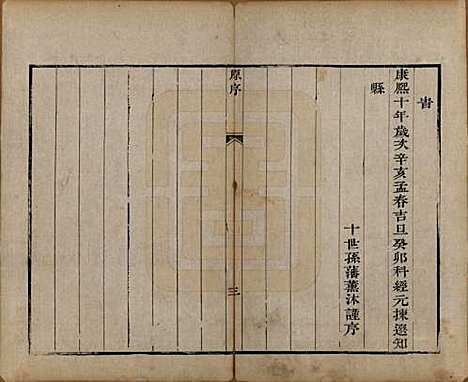 旹
康熙十年歲次辛亥孟春吉旦癸卯科經元揀選知
縣
十世孫藩薰沐謹序
原序
三